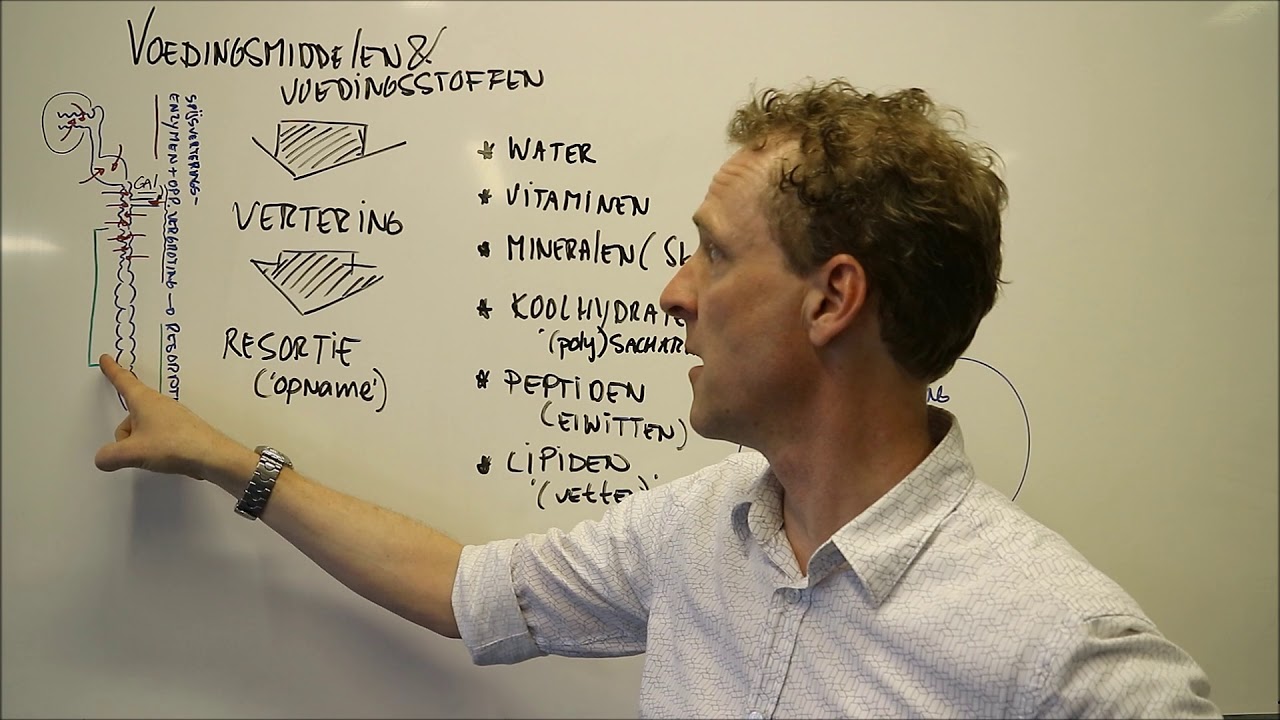 VOEDINGSMIDDELEN &
VOEDINGSSTOFFEN
SPIJSVERTERINGS-
ENZYMEN + OPP. VERGROTING → RESORPT
GAL
VERTERING
RESORTIE
('OPNAME')
* WATER
* VITAMINEN
* MINERALEN (
* KOOLHYDRATE
'(POLY)SACHAR
* PEPTIDEN
(EIWITTEN)
* LIPIDEN
'(vetten)'
NG